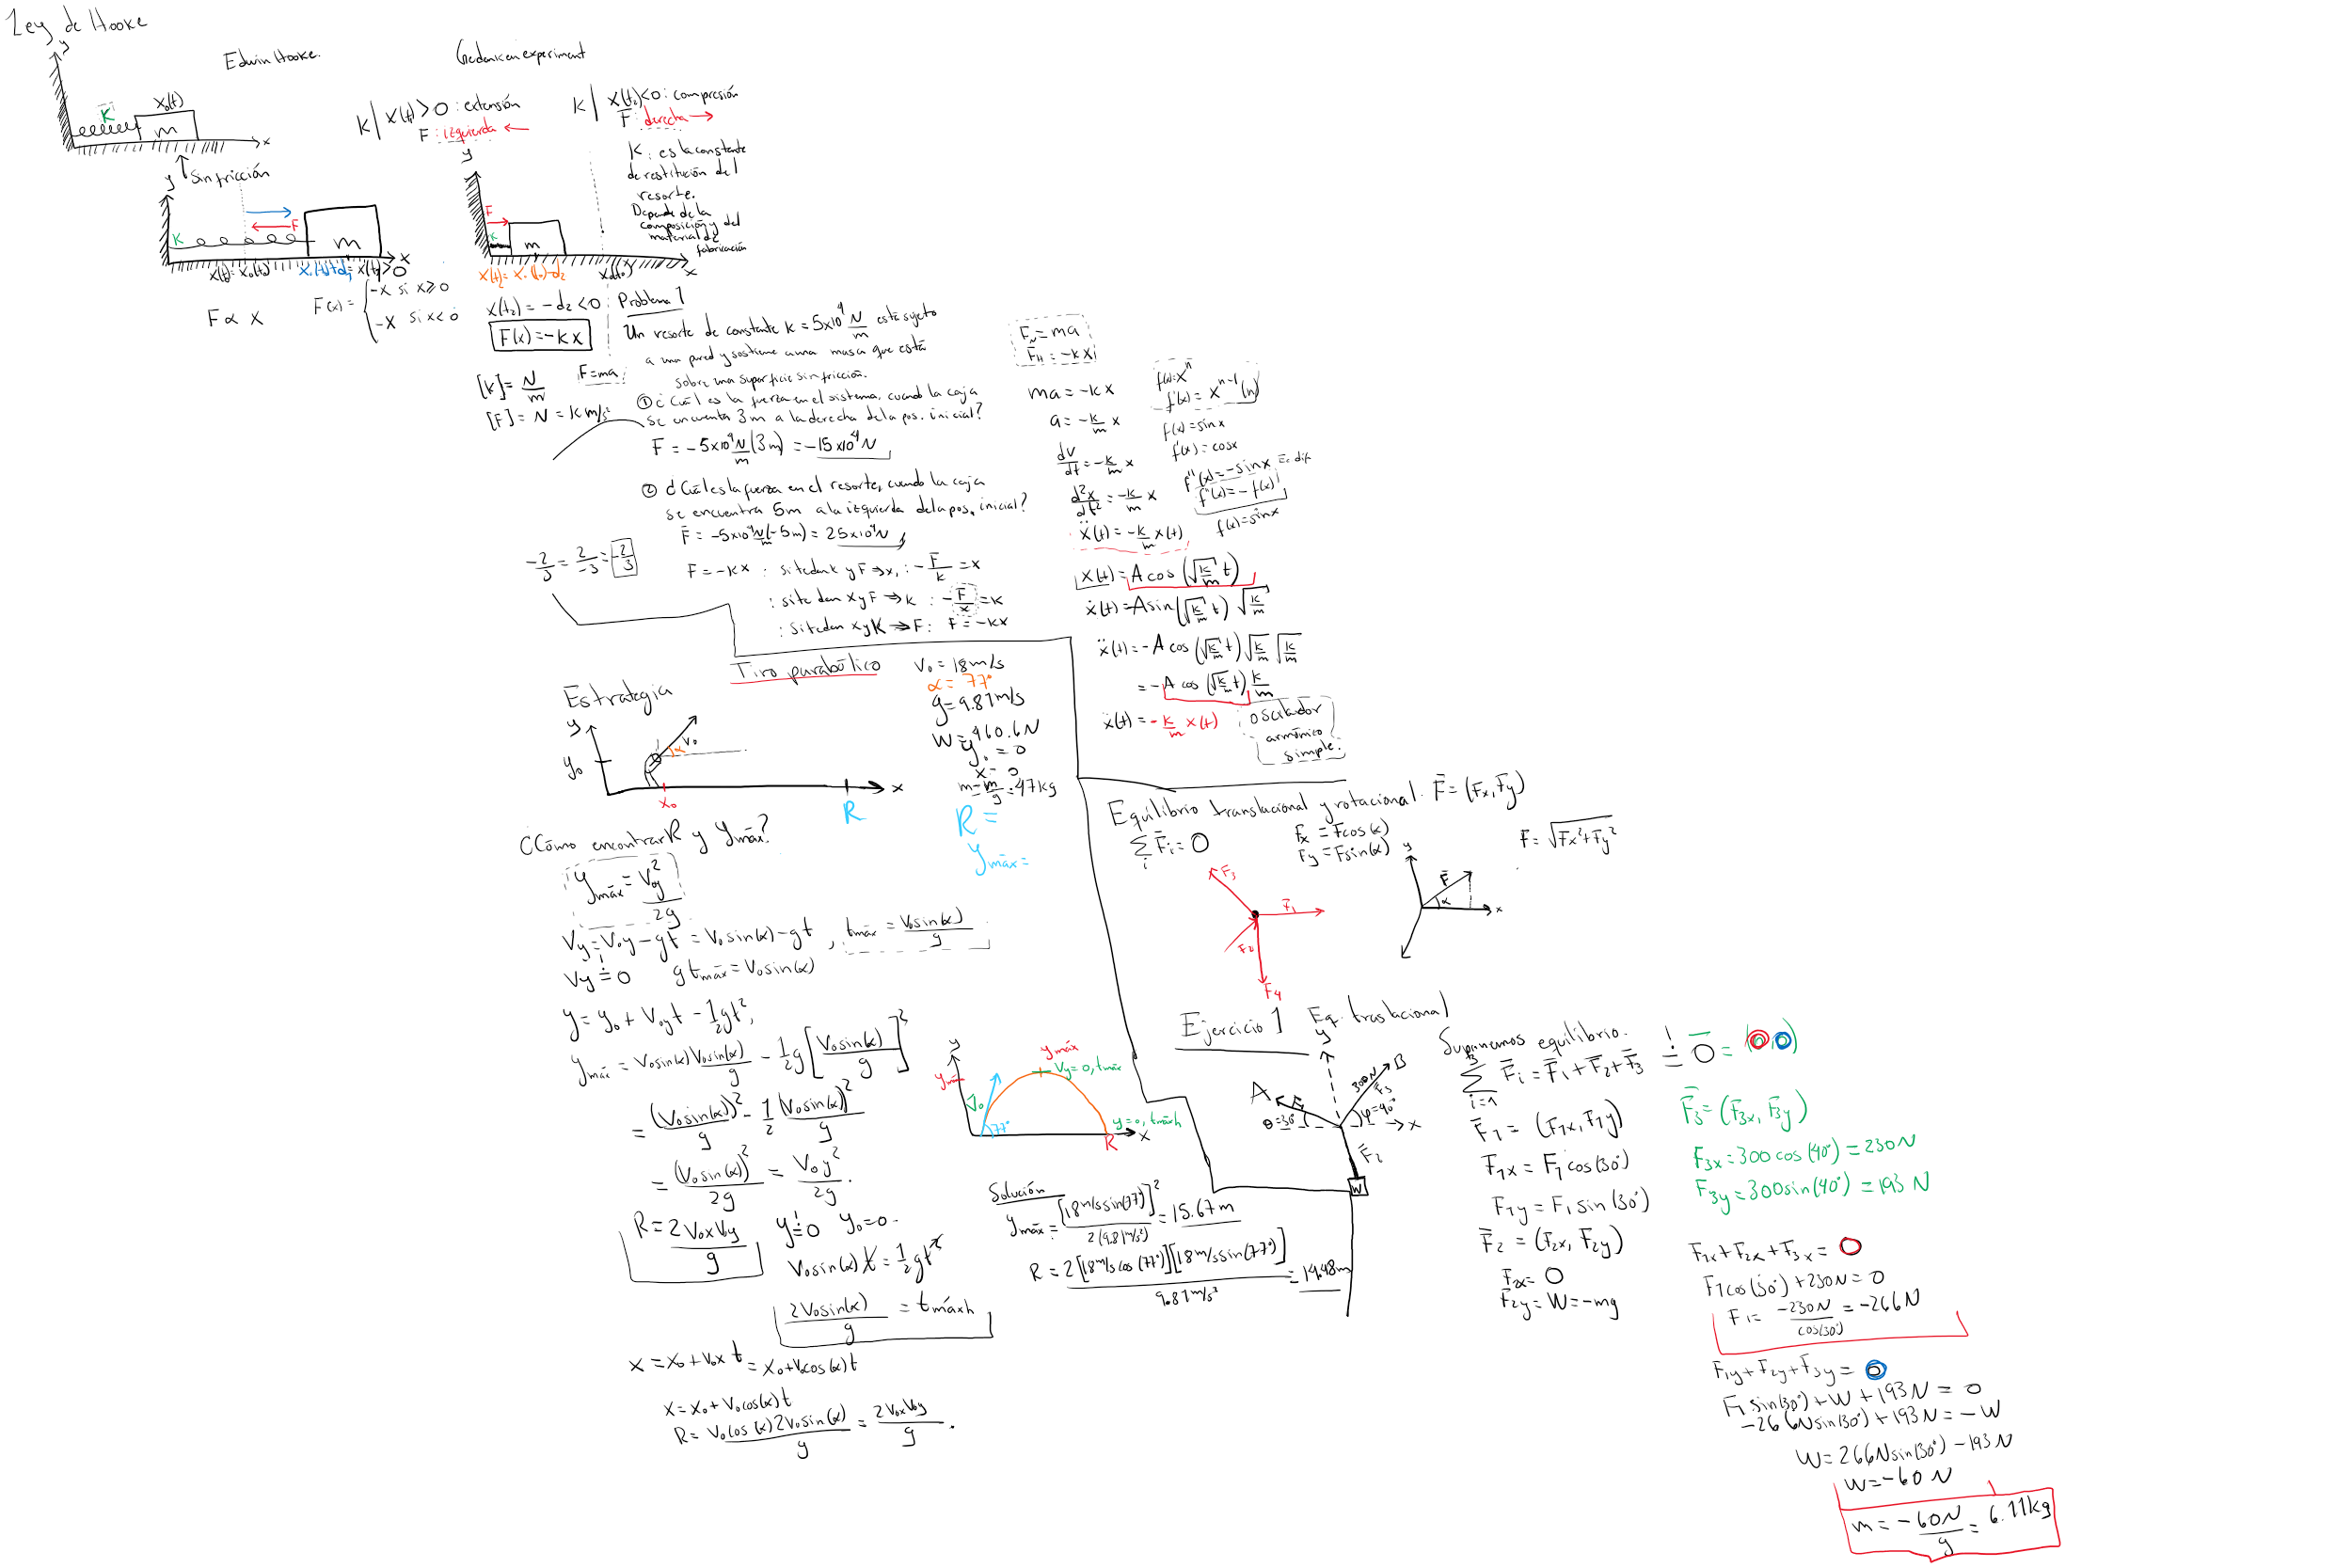 Ley de Hooke
Edwin Hooke.
Gedanken experiment
y
K
x₀(t)
m
x
Sin fricción
K | x(t₁) > 0 : extensión
F : izquierda ←
K | x(t₂) < 0 : compresión
F : derecha →
K : es la constante
de restitución del
resorte.
Depende de la
composición y del
material de
fabricación
y
K
F
m
x
x(t) = x₀(t₀)
x₀(t₀)+d₁ = x(t₁) > 0
y
F
K
m
x(t₂) = x₀(t₀)-d₂
x₀(t₀)
x
F ∝ x
F(x) = { -x si x ≥ 0
-x si x < 0
x(t₂) = -d₂ < 0
F(x) = -kx
[K] = N/m
F = ma
[F] = N = K m/s²
Problema 1
Un resorte de constante K = 5x10⁴ N/m está sujeto
a una pared y sostiene a una masa que está
sobre una superficie sin fricción.
① ¿Cuál es la fuerza en el sistema, cuando la caja
se encuentra 3m a la derecha de la pos. inicial?
F = -5x10⁴ N/m (3m) = -15x10⁴ N
② ¿Cuál es la fuerza en el resorte, cuando la caja
se encuentra 5m a la izquierda de la pos. inicial?
F̄ = -5x10⁴ N/m (-5m) = 25x10⁴ N
-2/3 = 2/-3 = -2/3
F = -kx : si te dan k y F ⇒ x, : -F/k = x
: si te dan x y F ⇒ K : -F/x = K
: si te dan x y K ⇒ F : F = -kx
F_N = ma
F_H = -kx
ma = -kx
a = -k/m x
dv/dt = -k/m x
d²x/dt² = -k/m x
ẍ(t) = -k/m x(t)
f(x) = xⁿ
f'(x) = xⁿ⁻¹(n)
f(x) = sinx
f'(x) = cosx
f''(x) = -sinx Ec. dif
f''(x) = -f(x)
f(x) = sinx
x(t) = A cos(√(k/m) t)
ẋ(t) = A sin(√(k/m) t) √(k/m)
ẍ(t) = -A cos(√(k/m) t) √(k/m) √(k/m)
= -A cos(√(k/m) t) k/m
ẍ(t) = -k/m x(t)
oscilador
armónico
simple.
Tiro parabólico
V₀ = 18 m/s
α = 77°
g = 9.81 m/s
W = 460.6 N
y₀ = 0
x₀ = 0
m = m/g = 47 kg
R =
y_máx =
Estrategia
y
y₀
V₀
α
x₀
R
x
¿Cómo encontrar R y y_máx?
y_máx = V₀y²/2g
Vy = V₀y - gt = V₀ sin(α) - gt , t_máx = V₀ sin(α)/g
Vy ≟ 0 g t_máx = V₀ sin(α)
y = y₀ + V₀y t - 1/2 gt²,
y_máx = V₀ sin(α) V₀ sin(α)/g - 1/2 g [V₀ sin(α)/g]²
= (V₀ sin(α))²/g - 1/2 (V₀ sin(α))²/g
= (V₀ sin(α))²/2g = V₀y²/2g .
R = 2 V₀x V₀y/g
y ≟ 0 y₀ = 0.
V₀ sin(α) t = 1/2 gt²
2V₀ sin(α)/g = t_máxh
x = x₀ + V₀x t = x₀ + V₀ cos(α) t
x = x₀ + V₀ cos(α) t
R = V₀ cos(α) 2V₀ sin(α)/g = 2V₀x V₀y/g .
y
y_máx
y_máx
Vy = 0, t_máx
V̄₀
77°
y = 0, t_máxh
R
x
Solución
y_máx = [18 m/s sin(77)]²/2(9.81 m/s²) = 15.67 m
R = 2[18 m/s cos(77°)][18 m/s sin(77°)]/9.81 m/s² = 14.48 m
Equilibrio translacional y rotacional. F̄ = (Fx, Fy)
Σᵢ F̄ᵢ = 0
Fx = F cos(α)
Fy = F sin(α)
F = √(Fx² + Fy²)
F₃
F̄₁
F₂
F₄
y
F̄
α
x
Ejercicio 1 Eq. traslacional
y
A
F₁
θ = 30°
300 N
B
F₃
φ = 40°
x
F̄₂
W
Suponemos equilibrio.
Σ³ᵢ₌₁ F̄ᵢ = F̄₁ + F̄₂ + F̄₃ ≟ 0̄ = (0,0)
F̄₁ = (F₁x, F₁y)
F₁x = F₁ cos(30°)
F₁y = F₁ sin(30°)
F̄₂ = (F₂x, F₂y)
F₂x = 0
F₂y = W = -mg
F̄₃ = (F₃x, F₃y)
F₃x = 300 cos(40°) = 230 N
F₃y = 300 sin(40°) = 193 N
F₁x + F₂x + F₃x = 0
F₁ cos(30°) + 230 N = 0
F₁ = -230 N/cos(30°) = -266 N
F₁y + F₂y + F₃y = 0
F₁ sin(30°) + W + 193 N = 0
-266 N sin(30°) + 193 N = -W
W = 266 N sin(30°) - 193 N
W = -60 N
m = -60 N/g = 6.11 kg